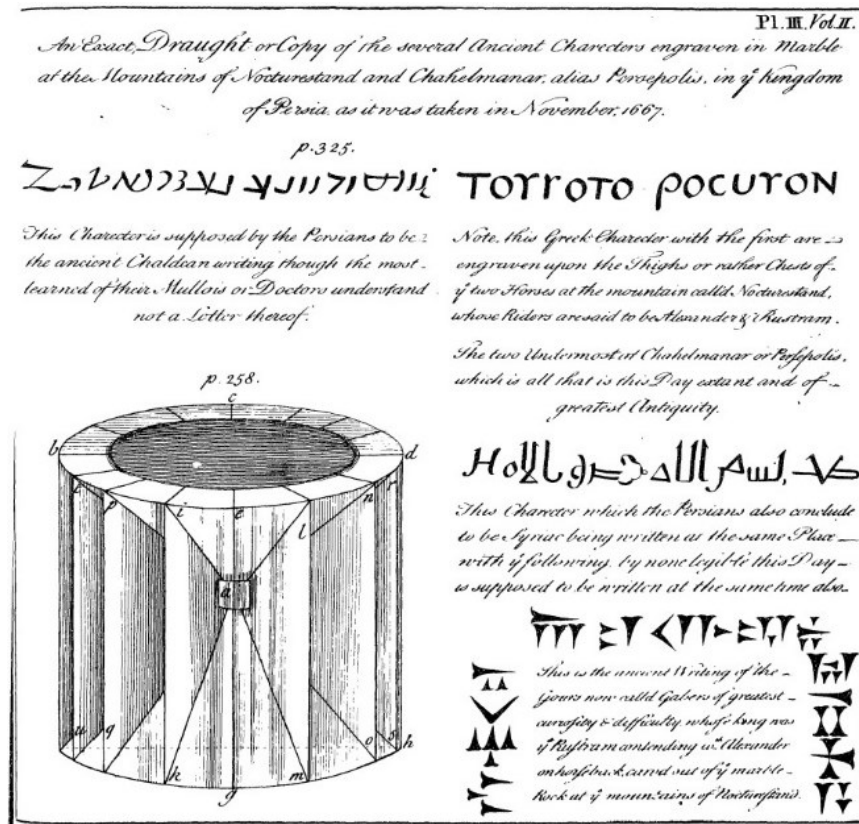 Pl. III. Vol. II.
An Exact Draught or Copy of the several Ancient Charecters engraven in Marble
at the Mountains of Nocturestand and Chahelmanar, alias Persepolis, in yͤ Kingdom
of Persia, as it was taken in November, 1667.
p. 325.
This Charecter is supposed by the Persians to be
the ancient Chaldean writing though the most
learned of their Mullois or Doctors understand
not a Letter thereof.
TOYΓOTO POCUYON
Note, this Greek Charecter with the first are
engraven upon the Thighs or rather Chests of
yͤ two Horses at the mountain calld Nocturestand,
whose Riders are said to be Alexander & Rustram.
The two Undermost at Chahelmanar or Persepolis,
which is all that is this Day extant and of
greatest Antiquity.
p. 258.
c
b d
f p i e l n r
a
u q k g m o s h
This Charecter which the Persians also conclude
to be Syriac being written at the same Place
with yͤ following, by none legible this Day
is supposed to be written at the same time also.
This is the ancient Writing of the
Gours now calld Gabers of greatest
curiosity & difficulty, whose king was
yͤ Rustram contending wᵗʰ Alexander
on horseback, carvd out of yͤ marble
Rock at yͤ mountains of Nocturestand.